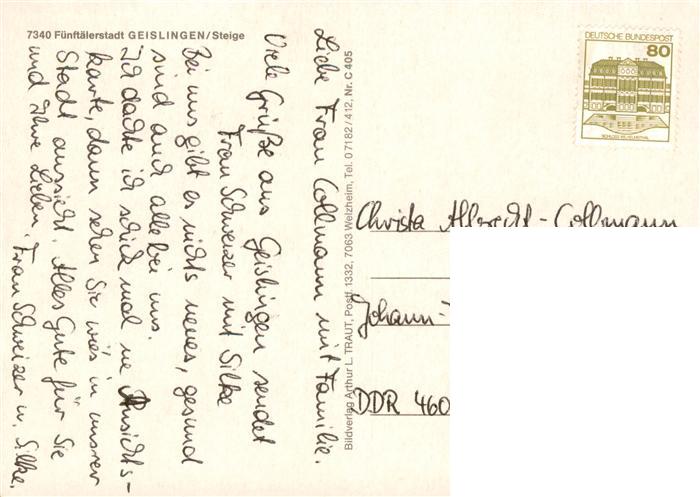 7340 Fünftälerstadt GEISLINGEN/Steige
Liebe Frau Collmann mit Familie.
Viele Grüße aus Geislingen sendet
Frau Schweizer mit Silke
Bei uns gibt es nichts neues, gesund
sind auch alle bei uns.
Ich dachte ich schick mal ne Ansichts-
karte, dann sehen Sie wie's in unsrer
Stadt aussieht. Alles Gute für Sie
und Ihre Lieben. Frau Schweizer u. Silke.
Bildverlag Arthur L. TRAUT, Postf. 1332, 7063 Welzheim, Tel. 07182/412, Nr. C 405
DEUTSCHE BUNDESPOST
80
SCHLOSS WILHELMSTHAL
Christa Albrecht-Collmann
Johann-
DDR 460